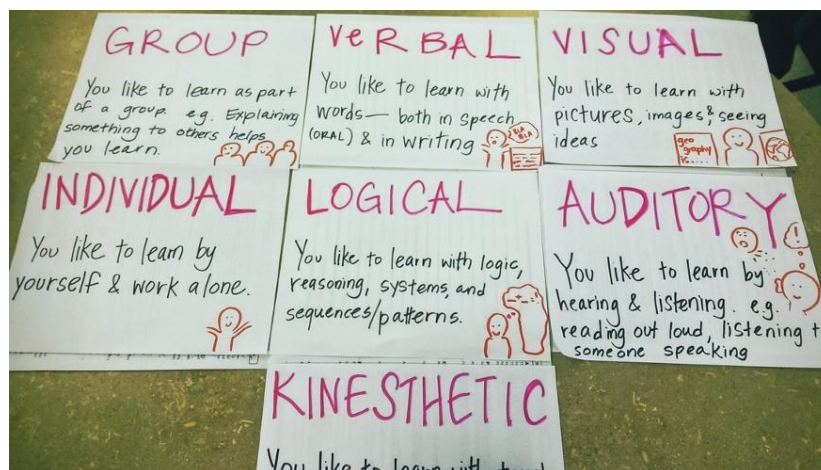 GROUP
You like to learn as part
of a group. e.g. Explaining
something to others helps
you learn.
VeRBAL
You like to learn with
words— both in speech
(ORAL) & in writing
BLA
BLA
VISUAL
You like to learn with
pictures, images & seeing
ideas
geo
graphy
is.....
INDIVIDUAL
You like to learn by
yourself & work alone.
LOGICAL
You like to learn with logic,
reasoning, systems, and
sequences/patterns.
AUDITORY
You like to learn by
hearing & listening. e.g.
reading out loud, listening t
someone speaking
KINESTHETIC
You like to learn with